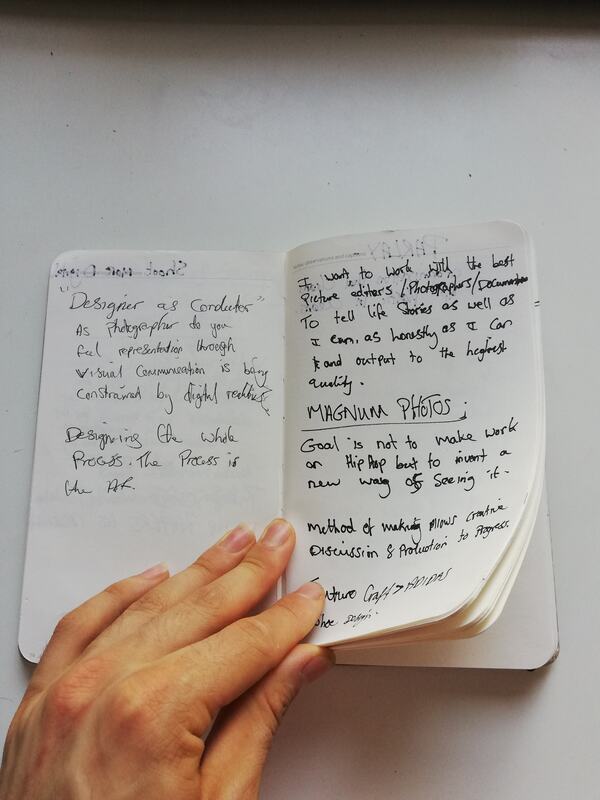 "Designer as Conductor"
As Photographer do you
feel representation through
visual Communication is being
constrained by digital realities
Designing the whole
Process. The Process is
the Art.
I want to work with the best
Picture editors / Photographers /
To tell life Stories as well as
I can, as honestly as I Can
and output to the highest
quality.
MAGNUM PHOTOS.
Goal is not to make work
on Hip Hop but to invent a
new way of Seeing it.
Method of making Allows Creative
Discussion & Production to Progress.
Future Craft > ADIDAS
Shoe